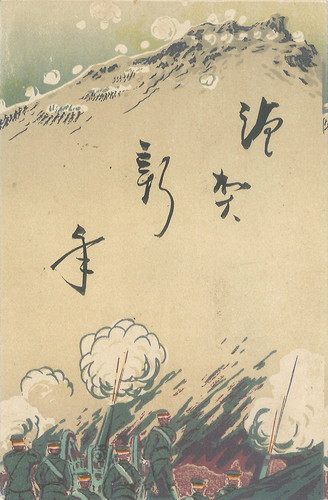 謹賀
新
年